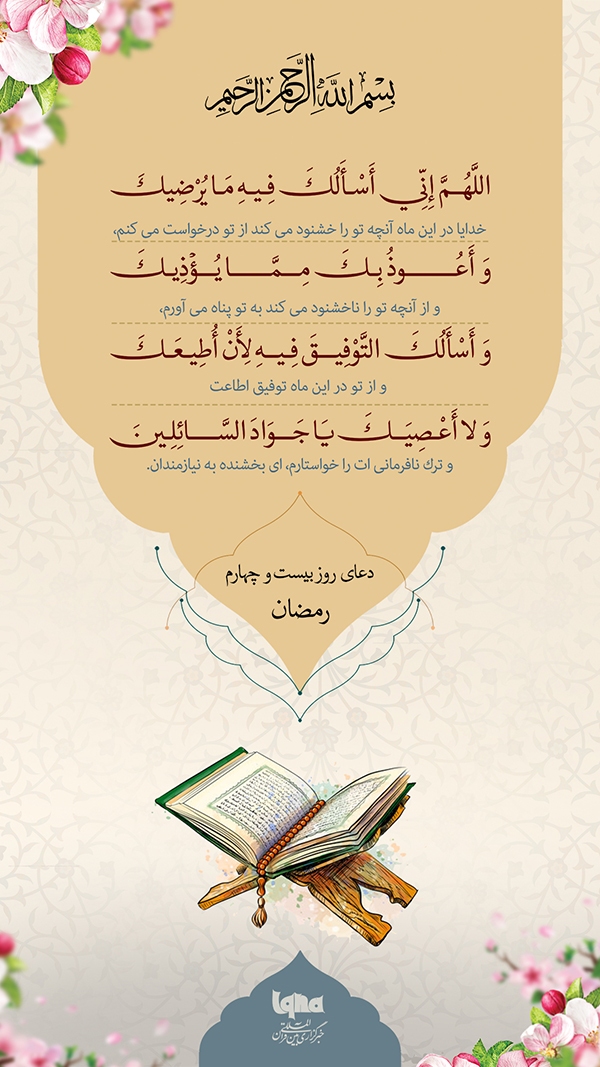 بِسْمِ اللَّهِ الرَّحْمَنِ الرَّحِيمِ
اللَّهُمَّ إِنِّي أَسْأَلُكَ فِيهِ مَا يُرْضِيكَ
خدایا در این ماه آنچه تو را خشنود می کند از تو درخواست می کنم،
وَ أَعُوذُ بِكَ مِمَّا يُؤْذِيكَ
و از آنچه تو را ناخشنود می کند به تو پناه می آورم،
وَ أَسْأَلُكَ التَّوْفِيقَ فِيهِ لِأَنْ أُطِيعَكَ
و از تو در این ماه توفیق اطاعت
وَ لا أَعْصِيَكَ يَا جَوَادَ السَّائِلِينَ
و ترك نافرمانی ات را خواستارم، ای بخشنده به نیازمندان.
دعای روز بیست و چهارم
رمضان
iqna
خبرگزاری بین المللی قرآن